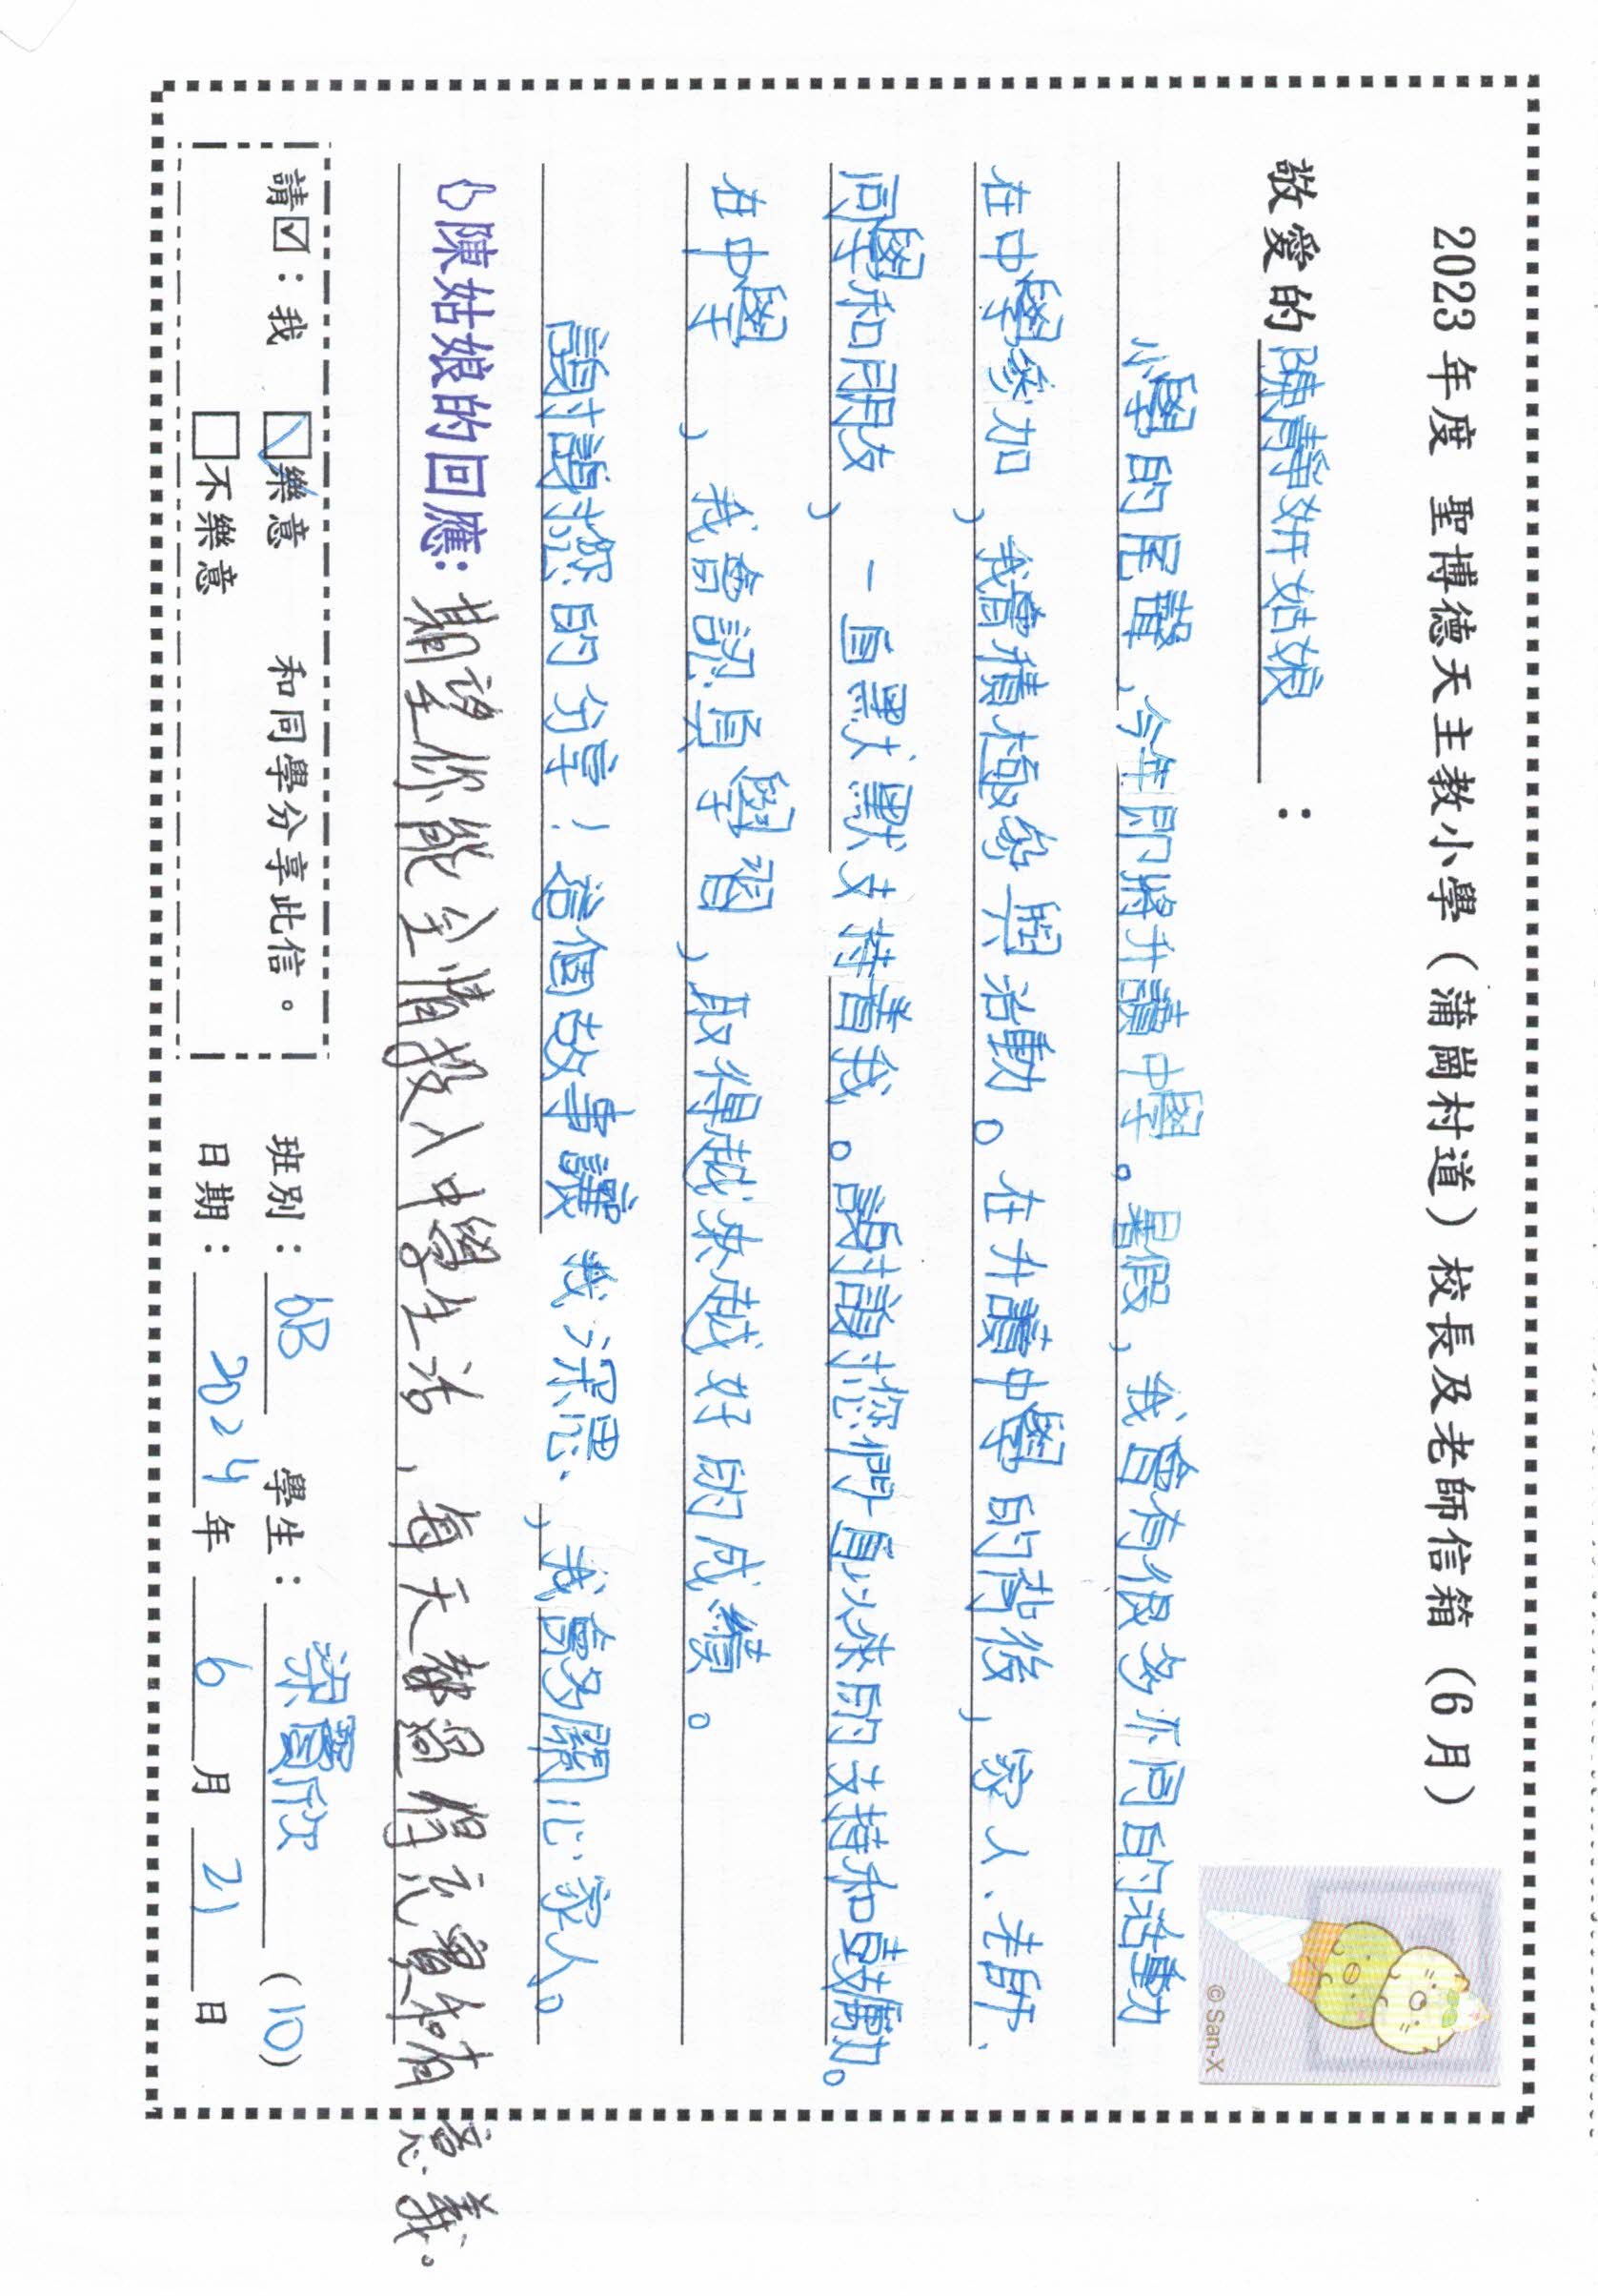 2023 年度 聖博德天主教小學（蒲崗村道）校長及老師信箱（6月）
敬愛的陳靜妍姑娘：
小學的尾聲，今年即將升讀中學。暑假，我會有很多不同的活動
在中學參加，我會積極參與活動。在升讀中學的背後，家人、老師、
同學和朋友，一直默默支持着我。謝謝您們一直以來的支持和鼓勵。
在中學，我會認真學習，取得越來越好的成績。
謝謝您的分享！這個故事讓我深思，我會多關心家人。
陳姑娘的回應：期望你能全情投入中學生活，每天都過得充實和有意義。
請☑：我 ☑樂意 和同學分享此信。 班別：6B 學生：梁寶欣 (10)
□不樂意 日期：2024年6月21日
© San-X